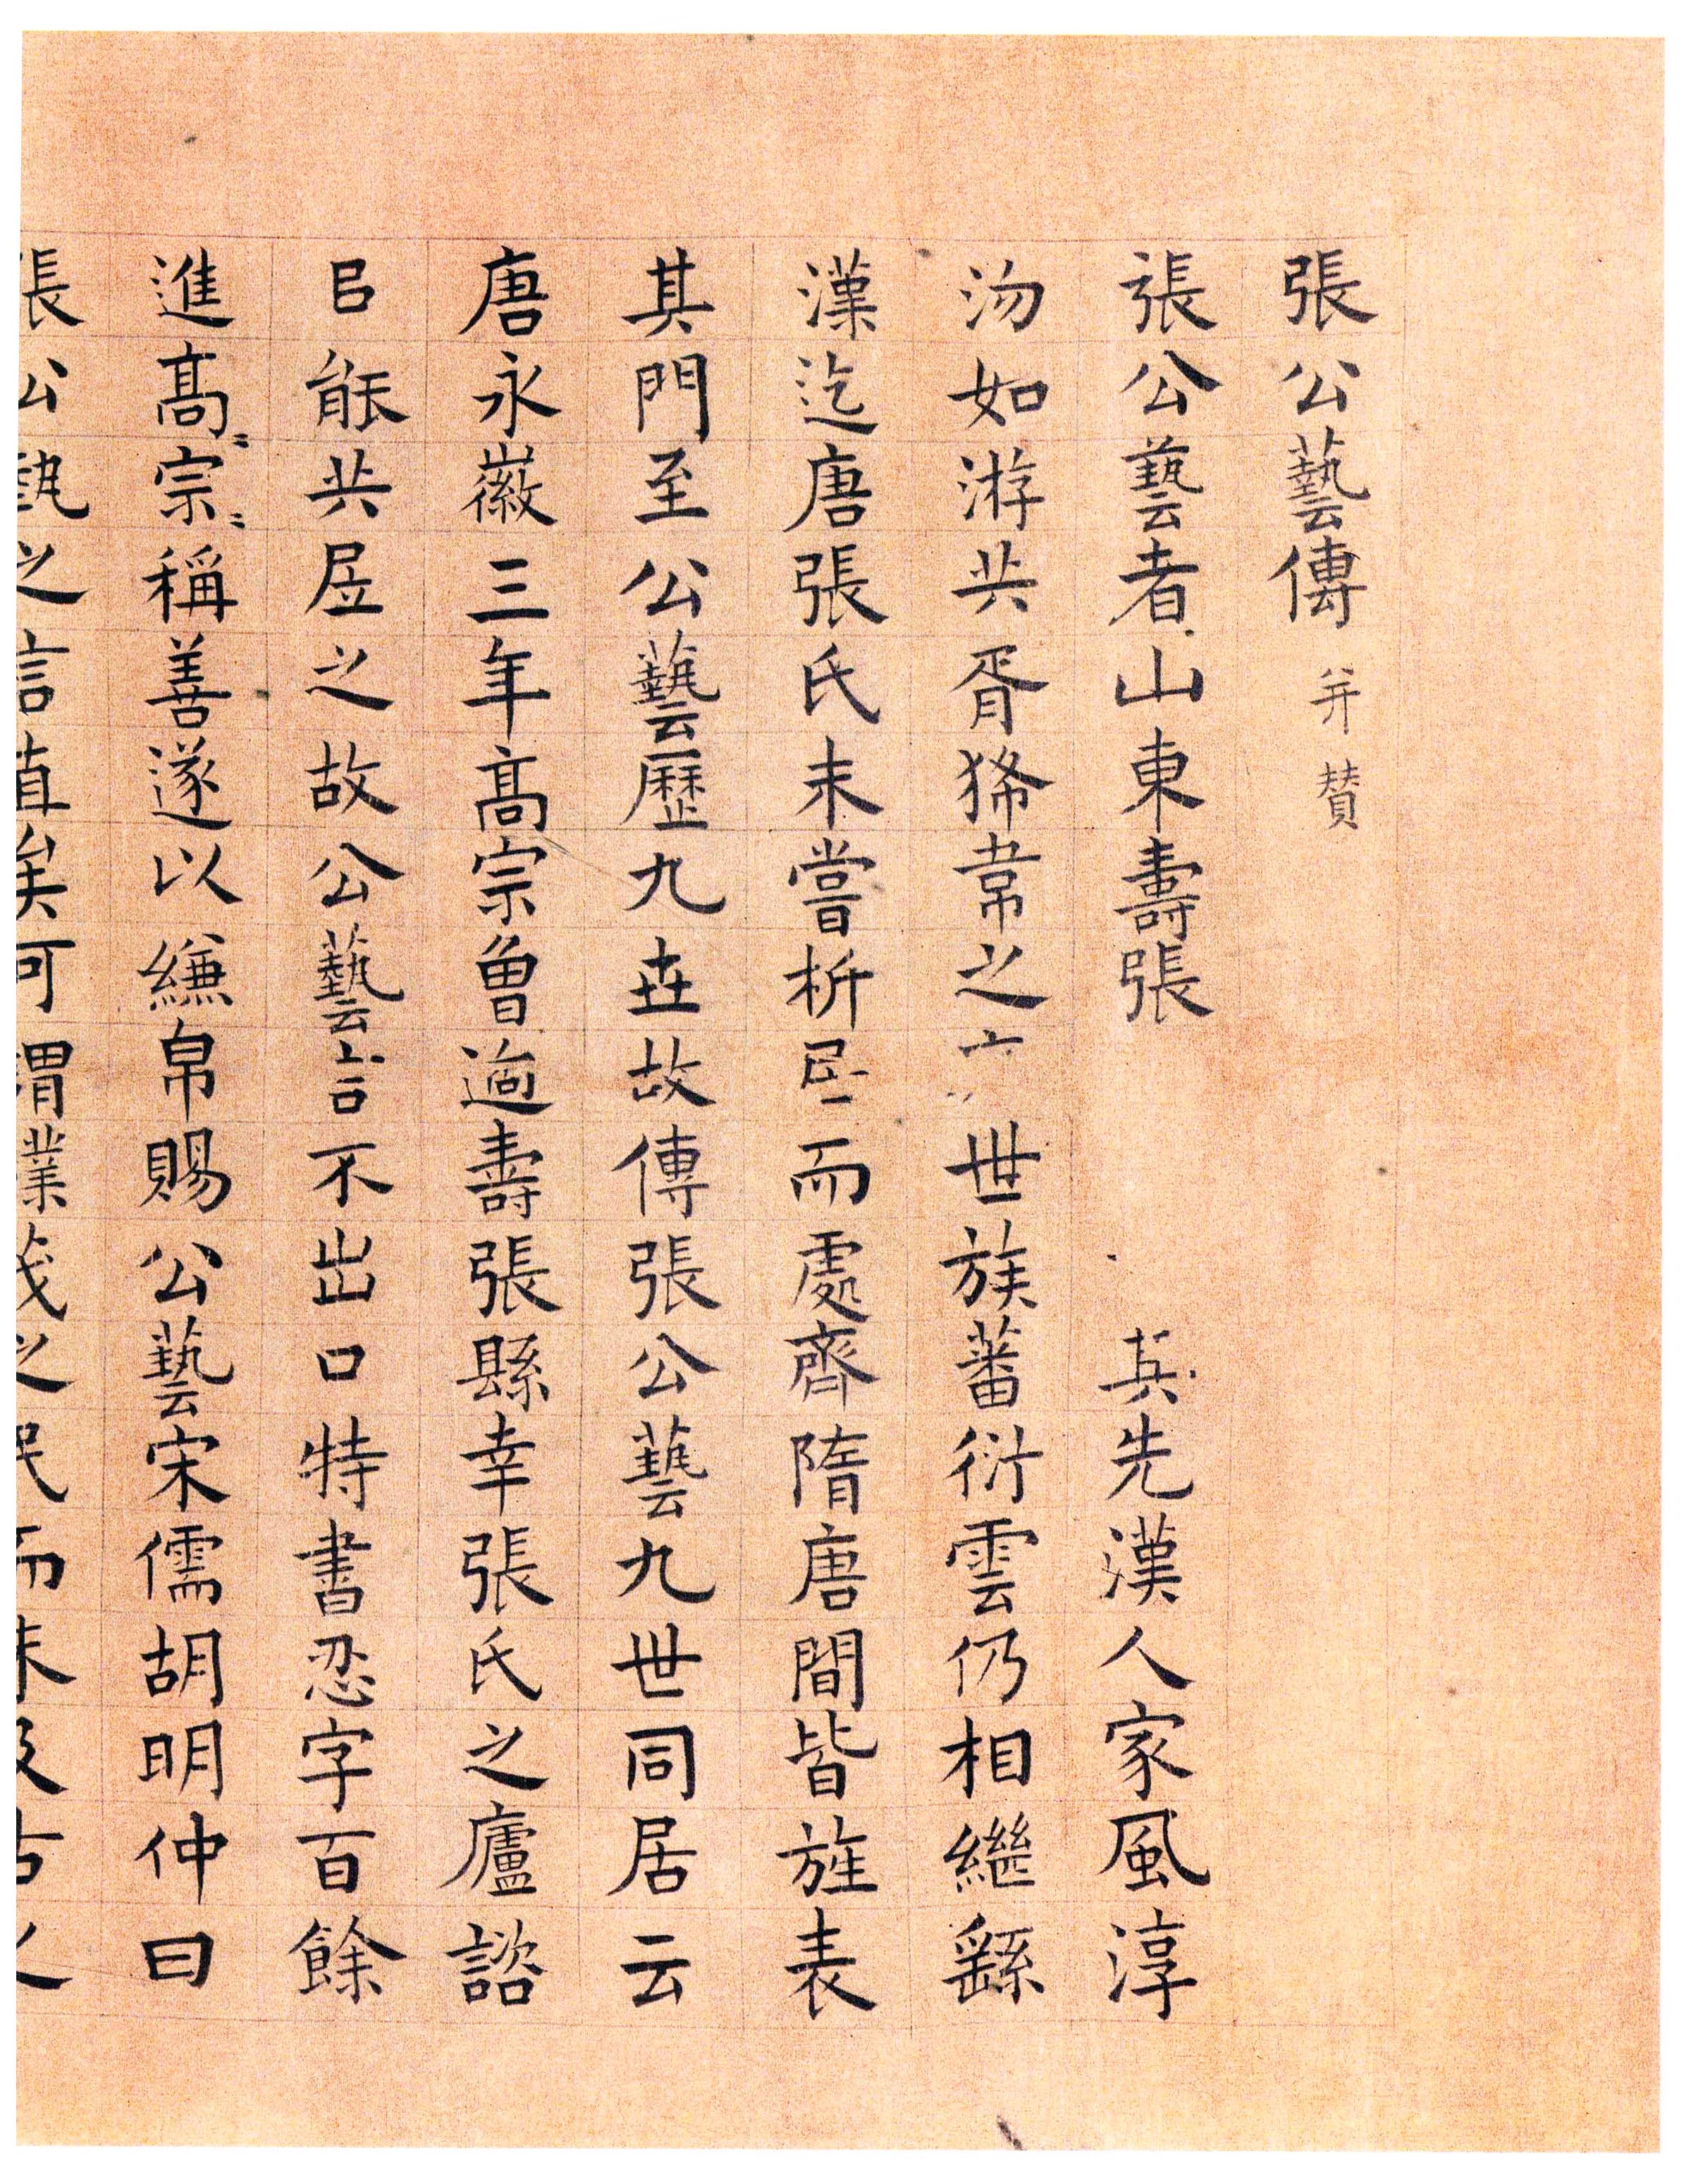 張公藝傳 并贊
張公藝者山東壽張 其先漢人家風淳
沕如游共胥狶韋之 世族蕃衍雲仍相繼繇
漢迄唐張氏未嘗析而處齊隋唐間皆旌表
其門至公藝歷九世故傳張公藝九世同居云
唐永徽三年高宗魯過壽張縣幸張氏之廬諮
㠯能共居之故公藝言不出口特書忍字百餘
進高〻宗〻稱善遂以縑帛賜公藝宋儒胡明仲曰
張公之信直矣可謂業之民而未及古人